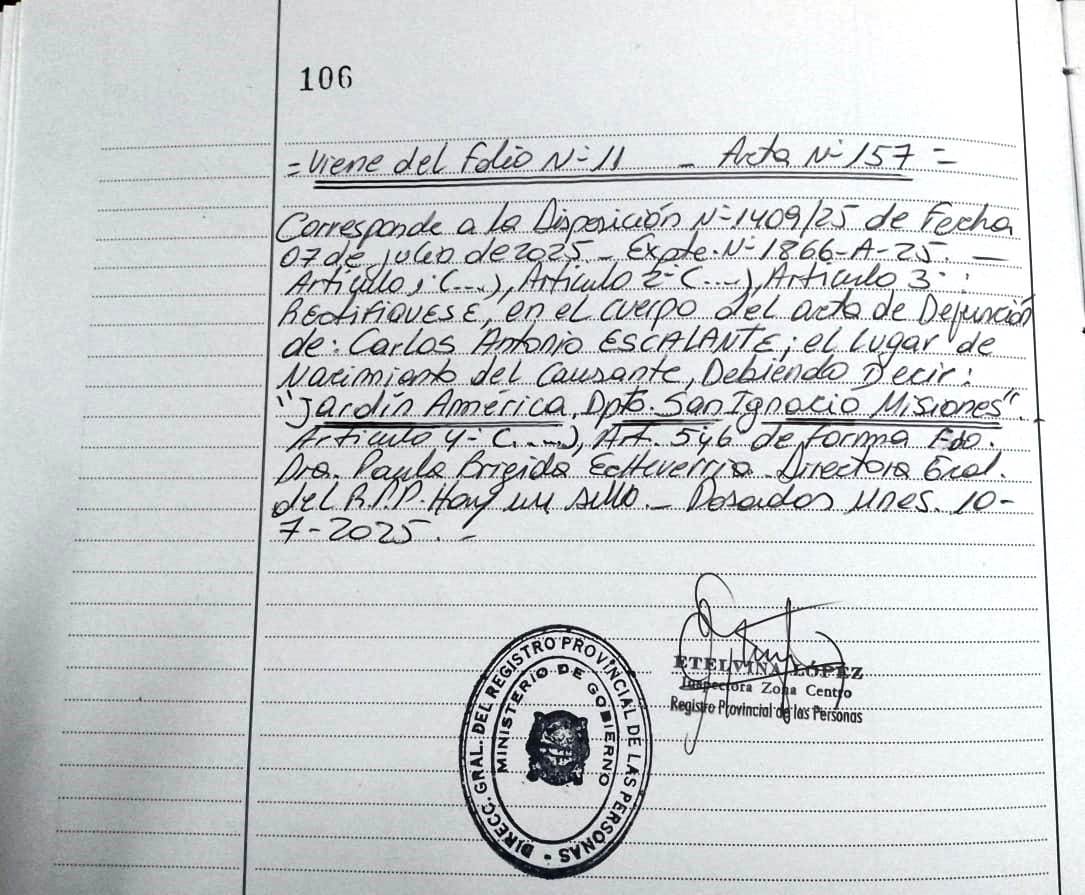 106
= Viene del Folio N° 11 _ Acta N° 157 =
Corresponde a la Disposición N° 1409/25 de Fecha
07 de julio de 2025 _ Expte. N° 1866-A-25. —
Artículo 1° (...), Artículo 2° (...), Artículo 3° :
RECTIFIQUESE, en el cuerpo del acta de Defunción
de: Carlos Antonio ESCALANTE; el Lugar de
Nacimiento del Causante, Debiendo Decir:
"Jardín América, Dpto. San Ignacio Misiones".
Artículo 4° (....), Art. 5y6 de forma Fdo.
Dra. Paula Brigida Echeverria. Directora Gral.
del R.P.P. Hay un sello. _ Posadas Mnes. 10-
7-2025. -
DIRECC. GRAL. DEL REGISTRO PROVINCIAL DE LAS PERSONAS
MINISTERIO DE GOBIERNO
ETELVINA LÓPEZ
Inspectora Zona Centro
Registro Provincial de las Personas